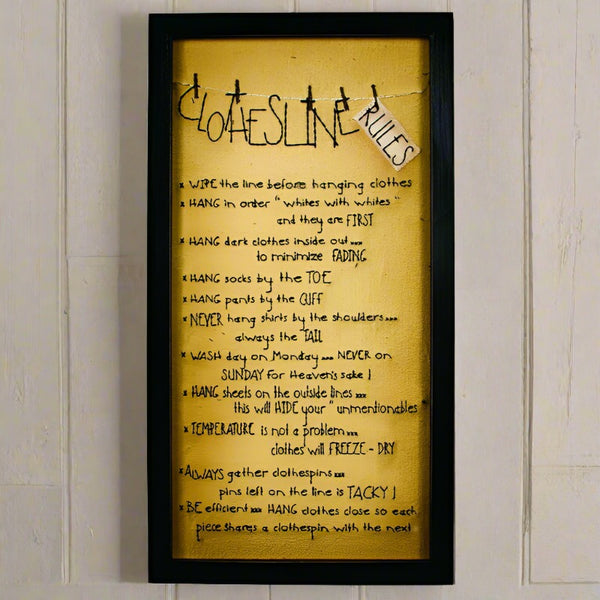 CLOTHESLINE
RULES
x WIPE the line before hanging clothes
x HANG in order "whites with whites"
and they are FIRST
x HANG dark clothes inside out...
to minimize FADING
x HANG socks by the TOE
x HANG pants by the CUFF
x NEVER hang shirts by the shoulders...
always the TAIL
x WASH day on Monday... NEVER on
SUNDAY for Heaven's sake!
x HANG sheets on the outside lines...
this will HIDE your "unmentionables"
x TEMPERATURE is not a problem...
clothes will FREEZE - DRY
x ALWAYS gather clothespins...
pins left on the line is TACKY!
x BE efficient... HANG clothes close so each
piece shares a clothespin with the next